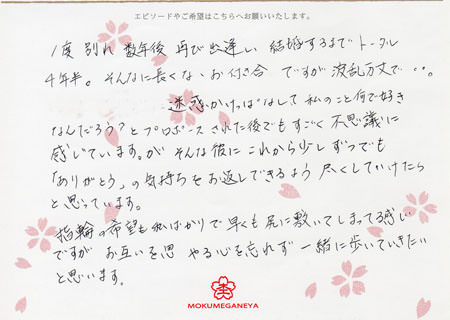 エピソードやご希望はこちらへお願いいたします。
1度 別れ 数年後 再び出逢い 結婚するまで トータル
4年半。そんなに長くないお付き合 ですが 波乱万丈で・・。
迷惑かけっぱなしで 私のこと何で好き
なんだろう?と プロポーズ された後でも すごく 不思議に
感じています。が そんな彼に これから少しずつでも
「ありがとう」の気持ちをお返しできるよう 尽くしていけたら
と思っています。
指輪の希望も私ばかりで 早くも尻に敷いてしまってる感じ
ですが お互いを思 やる心を忘れず 一緒に歩いていきたい
と思います。
MOKUMEGANEYA